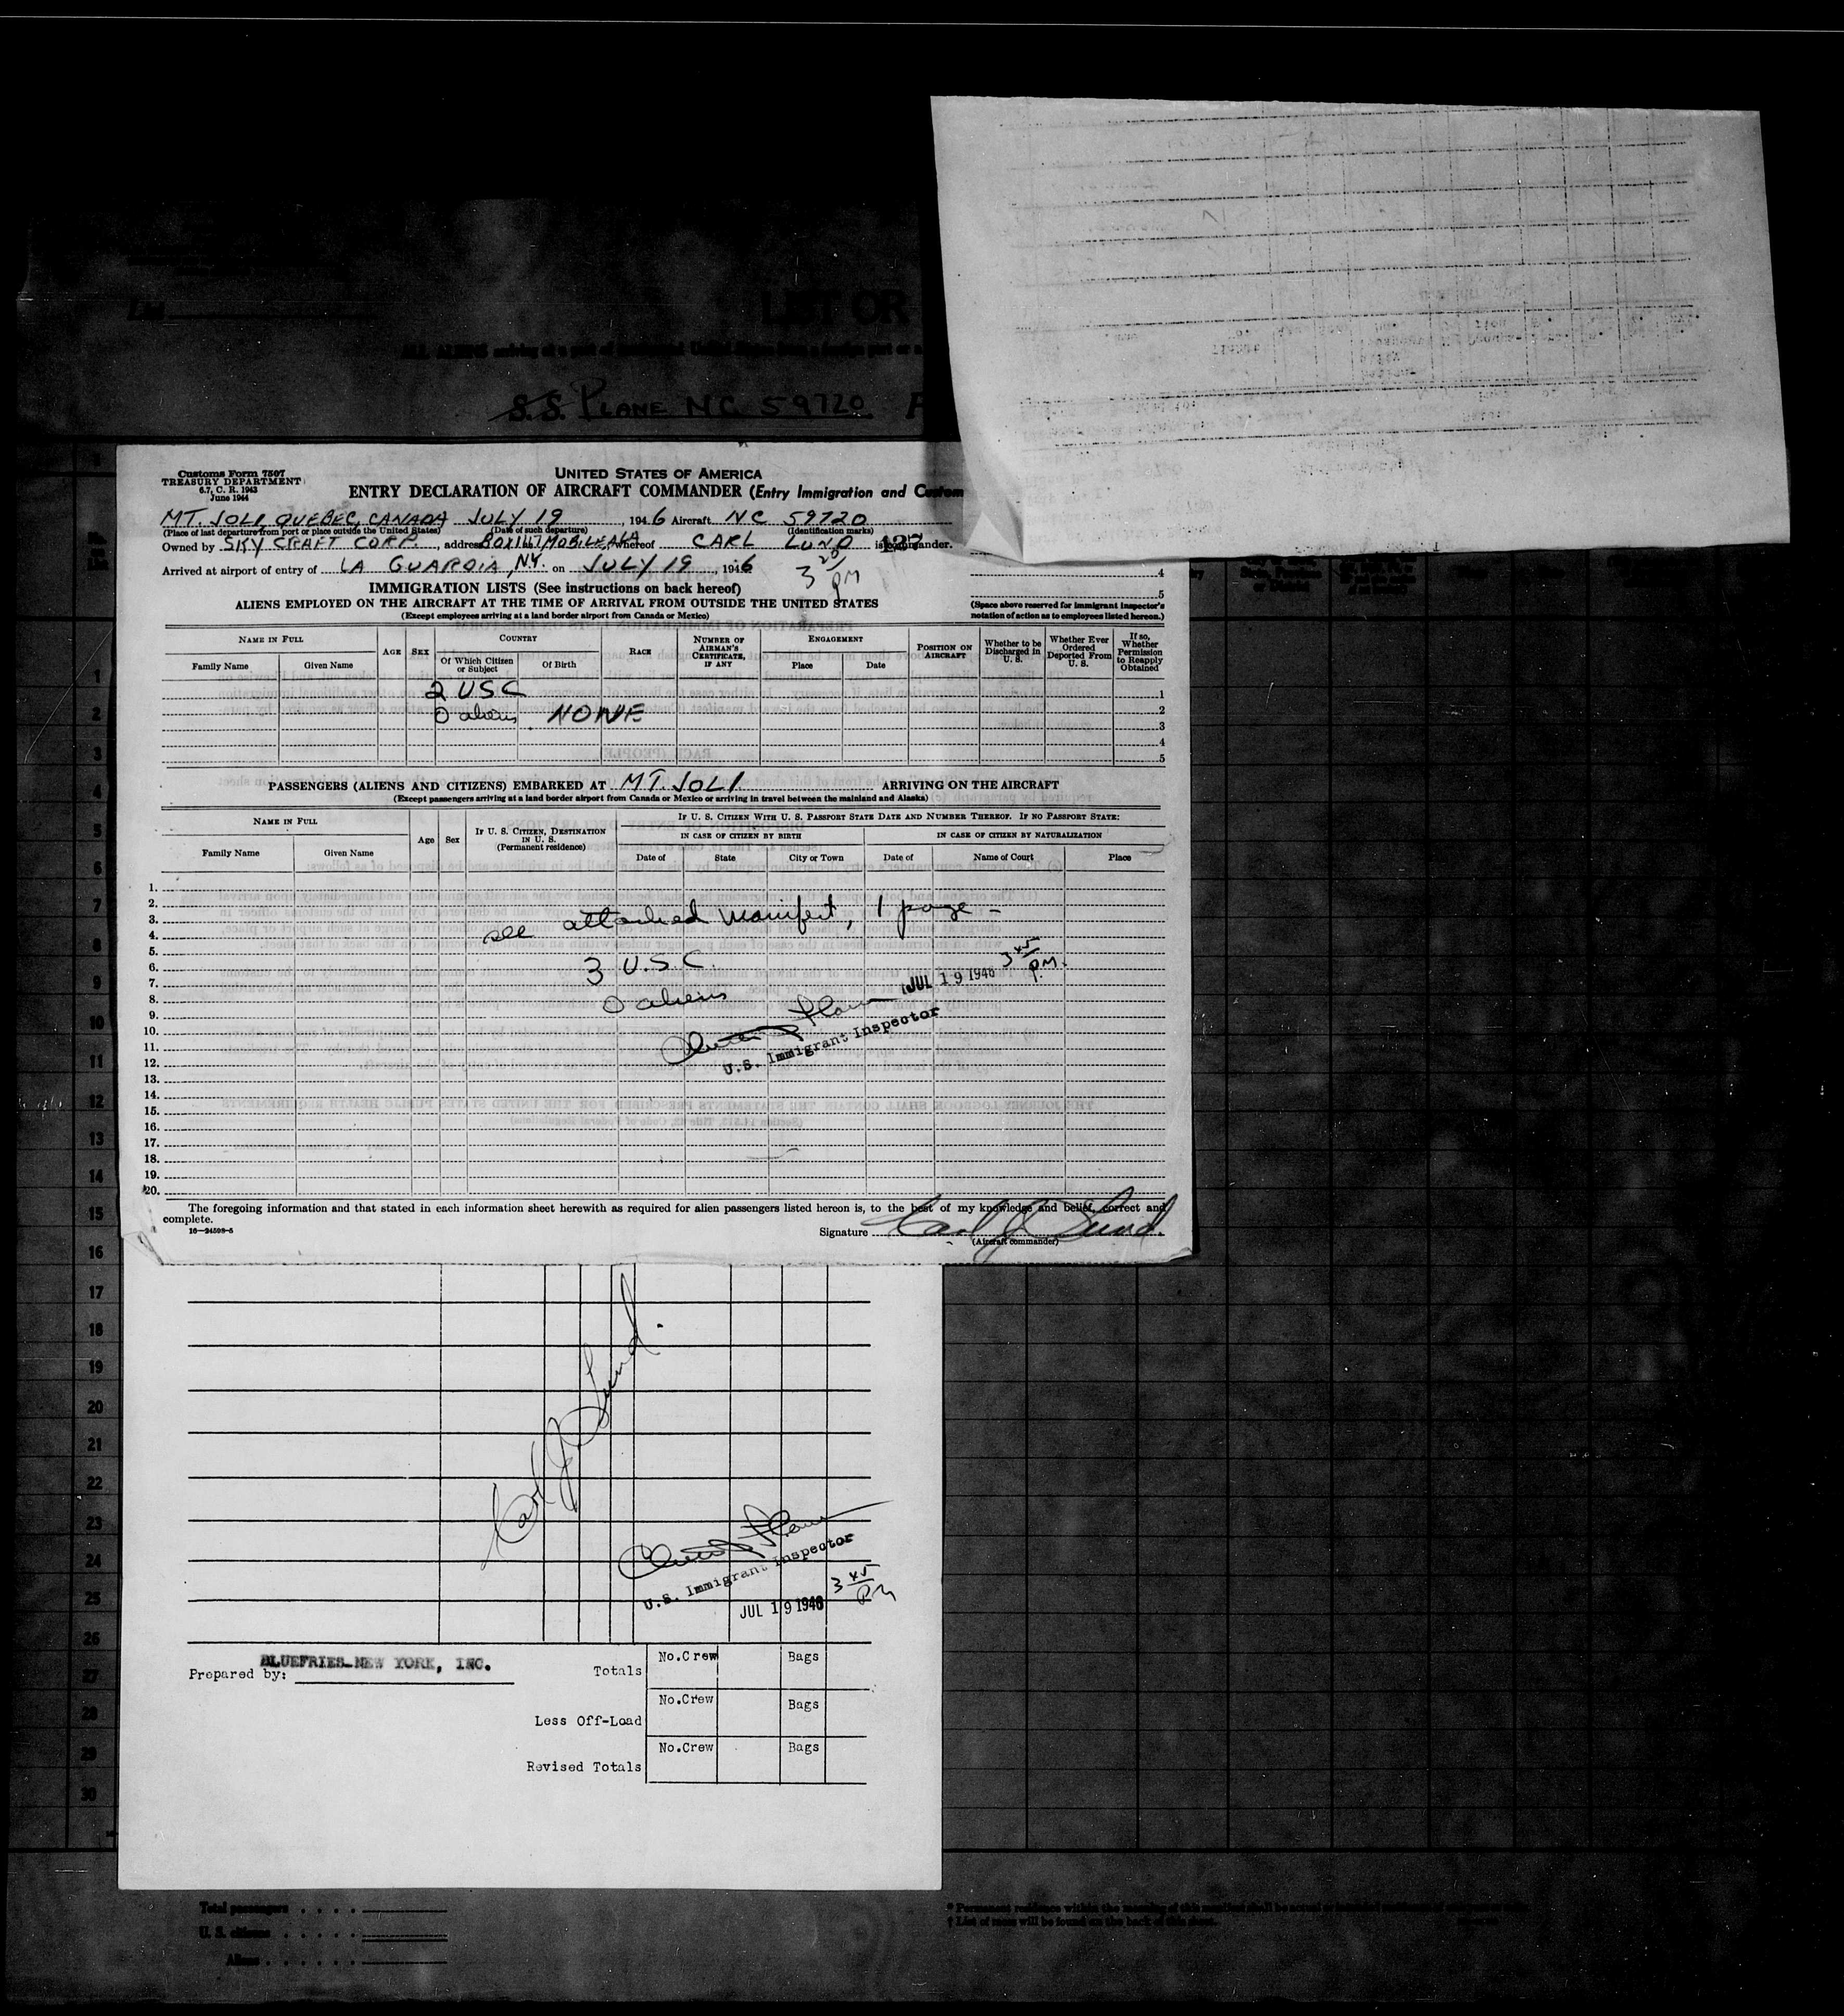 List
LIST OR
S.S. PLANE NC 59720
Customs Form 7507
TREASURY DEPARTMENT
6.7, C. R. 1943
June 1944
UNITED STATES OF AMERICA
ENTRY DECLARATION OF AIRCRAFT COMMANDER (Entry Immigration and Custom
MT. JOLI, QUEBEC, CANADA JULY 19, 1946 Aircraft NC 59720
(Place of last departure from port or place outside the United States) (Date of such departure) (Identification marks)
Owned by SKY CRAFT CORP., address BOX 1167 MOBILE, ALA, whereof CARL LUND is commander.
Arrived at airport of entry of LA GUARDIA, N.Y. on JULY 19, 1946 3 20 PM
4
5
IMMIGRATION LISTS (See instructions on back hereof)
ALIENS EMPLOYED ON THE AIRCRAFT AT THE TIME OF ARRIVAL FROM OUTSIDE THE UNITED STATES
(Except employees arriving at a land border airport from Canada or Mexico)
(Space above reserved for immigrant inspector's
notation of action as to employees listed hereon.)
NAME IN FULL AGE SEX COUNTRY RACE NUMBER OF AIRMAN'S CERTIFICATE, IF ANY ENGAGEMENT POSITION ON AIRCRAFT Whether to be Discharged in U. S. Whether Ever Ordered Deported From U. S. If so, Whether Permission to Reapply Obtained
Family Name Given Name Of Which Citizen or Subject Of Birth Place Date
2 USC 1
0 aliens NONE 2
3
4
5
PASSENGERS (ALIENS AND CITIZENS) EMBARKED AT MT. JOLI ARRIVING ON THE AIRCRAFT
(Except passengers arriving at a land border airport from Canada or Mexico or arriving in travel between the mainland and Alaska)
NAME IN FULL Age Sex IF U. S. CITIZEN, DESTINATION IN U. S. (Permanent residence) IF U. S. CITIZEN WITH U. S. PASSPORT STATE DATE AND NUMBER THEREOF. IF NO PASSPORT STATE:
IN CASE OF CITIZEN BY BIRTH IN CASE OF CITIZEN BY NATURALIZATION
Family Name Given Name Date of State City or Town Date of Name of Court Place
1.
2.
3. see attached manifest, 1 page -
4.
5.
6. 3 U.S.C. 3 45 PM.
7. JUL 19 1946
8. 0 aliens
9.
10.
11. U.S. Immigrant Inspector
12.
13.
14.
15.
16.
17.
18.
19.
20.
The foregoing information and that stated in each information sheet herewith as required for alien passengers listed hereon is, to the best of my knowledge and belief, correct and
complete.
16—24598-5
Signature Carl J Lund.
(Aircraft commander)
Carl J. Lund.
U.S. Immigrant Inspector
JUL 19 1946 3 45 PM
Prepared by: BLUEFRIES-NEW YORK, INC.
Totals No.Crew Bags
Less Off-Load No.Crew Bags
Revised Totals No.Crew Bags
1
2
3
4
5
6
7
8
9
10
11
12
13
14
15
16
17
18
19
20
21
22
23
24
25
26
27
28
29
30
Total passengers
U. S. citizens
Aliens
* Permanent residence within the meaning of this manifest shall be actual
† List of races will be found on the back of this sheet.